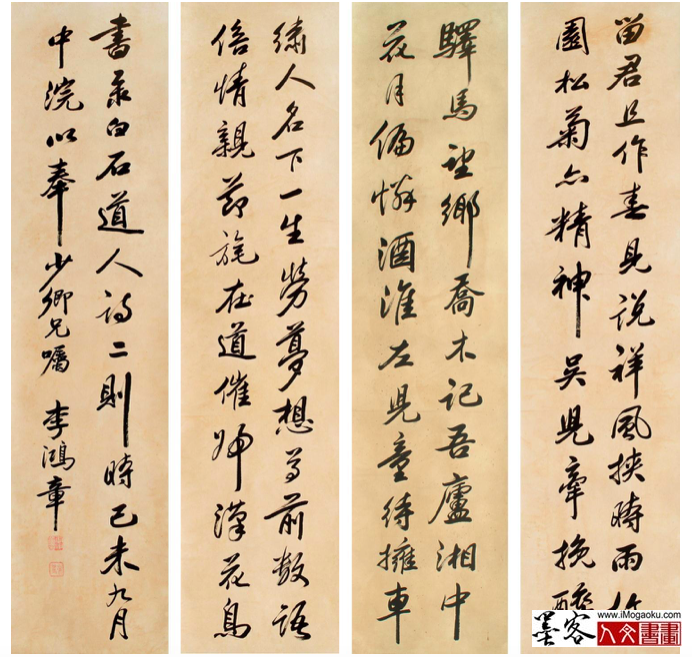 畱君且作見說祥風挾時雨
園松菊亦精神吳兒牽挽
驛馬望鄉喬木記吾廬湘中
花月偏憐酒淮左兒童待擁車
人名下一生勞夢想尊前數語
倍情親節旄在道催歸漢花鳥
書录白石道人詩二則時己未九月
中浣以奉少卿兄囑 李鴻章
www.iMogaoku.com
墨客
人文書畫